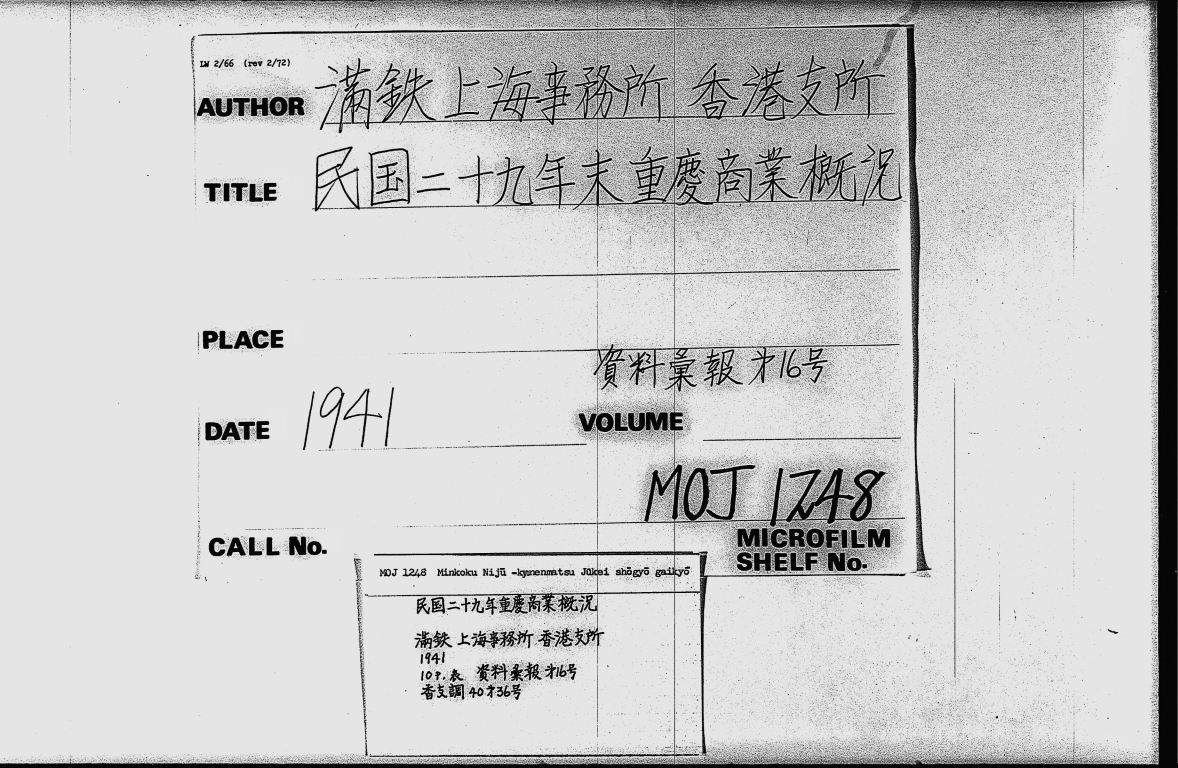 LW 2/66 (rev 2/72)
AUTHOR 滿鉄 上海事務所 香港支所
TITLE 民国二十九年末重慶商業概況
PLACE
資料彙報 才16号
DATE 1941 VOLUME
MOJ 1248
CALL No. MICROFILM
SHELF No.
MOJ 1248 Minkoku Nijū -kyunenmatsu Jūkei shōgyō gaikyō
民国二十九年重慶商業概況
滿鉄 上海事務所 香港支所
1941
10P. 表 資料彙報 才16号
香支調 40才36号